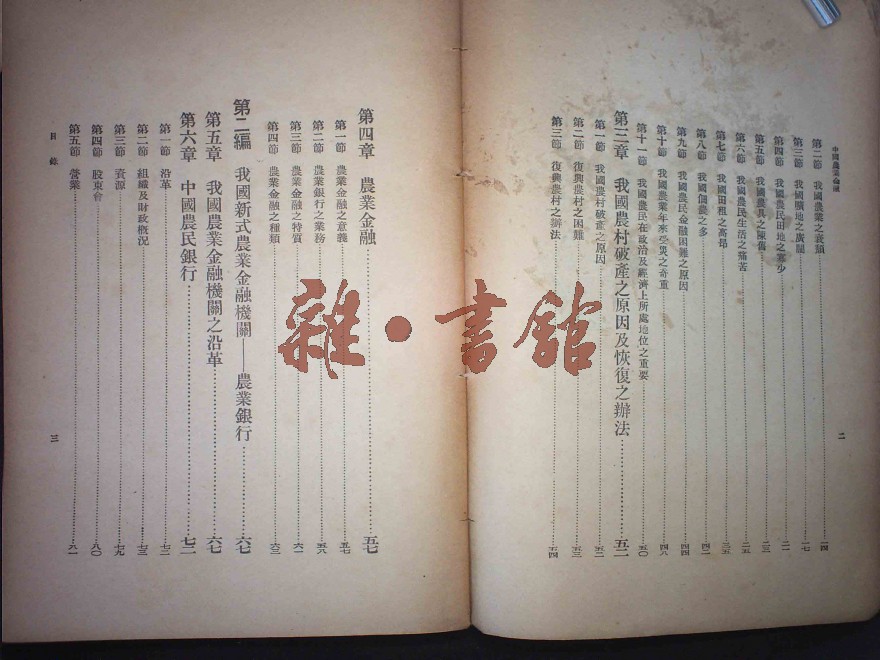 中國農業金融
第二節 我國農業之衰頹 二四
第三節 我國曠地之廣闊 一七
第四節 我國農民田地之寡少 二一
第五節 我國農具之陳舊 二三
第六節 我國農民生活之痛苦 二五
第七節 我國田租之高昂 三五
第八節 我國佃農之多 四二
第九節 我國農民金融困難之原因 四四
第十節 我國農業年來受災之奇重 四八
第十一節 我國農民在政治及經濟上所處地位之重要 五〇
第三章 我國農村破產之原因及恢復之辦法 五二
第一節 我國農村破產之原因 五二
第二節 復興農村之困難 五三
第三節 復興農村之辦法 五四
二
第四章 農業金融 五七
第一節 農業金融之意義 五七
第二節 農業銀行之業務 五八
第三節 農業金融之特質 六一
第四節 農業金融之種類 六三
第二編 我國新式農業金融機關——農業銀行 六七
第五章 我國農業金融機關之沿革 六七
第六章 中國農民銀行 七二
第一節 沿革 七二
第二節 組織及財政概況 七三
第三節 資源 七九
第四節 股東會 八〇
第五節 營業 九一
目錄
三
雜·書館